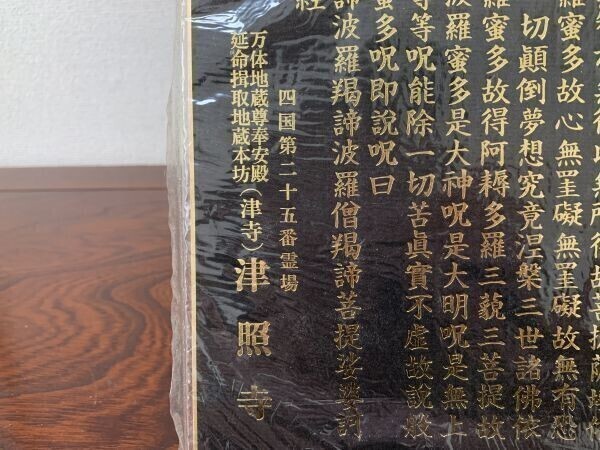 得以無所得故菩提薩埵依
羅蜜多故心無罣礙無罣礙故無有恐
切顛倒夢想究竟涅槃三世諸佛依
羅蜜多故得阿耨多羅三藐三菩提故
波羅蜜多是大神呪是大明呪是無上
等等呪能除一切苦眞實不虚故説般
蜜多呪即説呪曰
諦波羅羯諦波羅僧羯諦菩提娑婆訶
経
四国第二十五番霊場
万体地蔵尊奉安殿
延命揖取地蔵本坊（津寺）津照寺